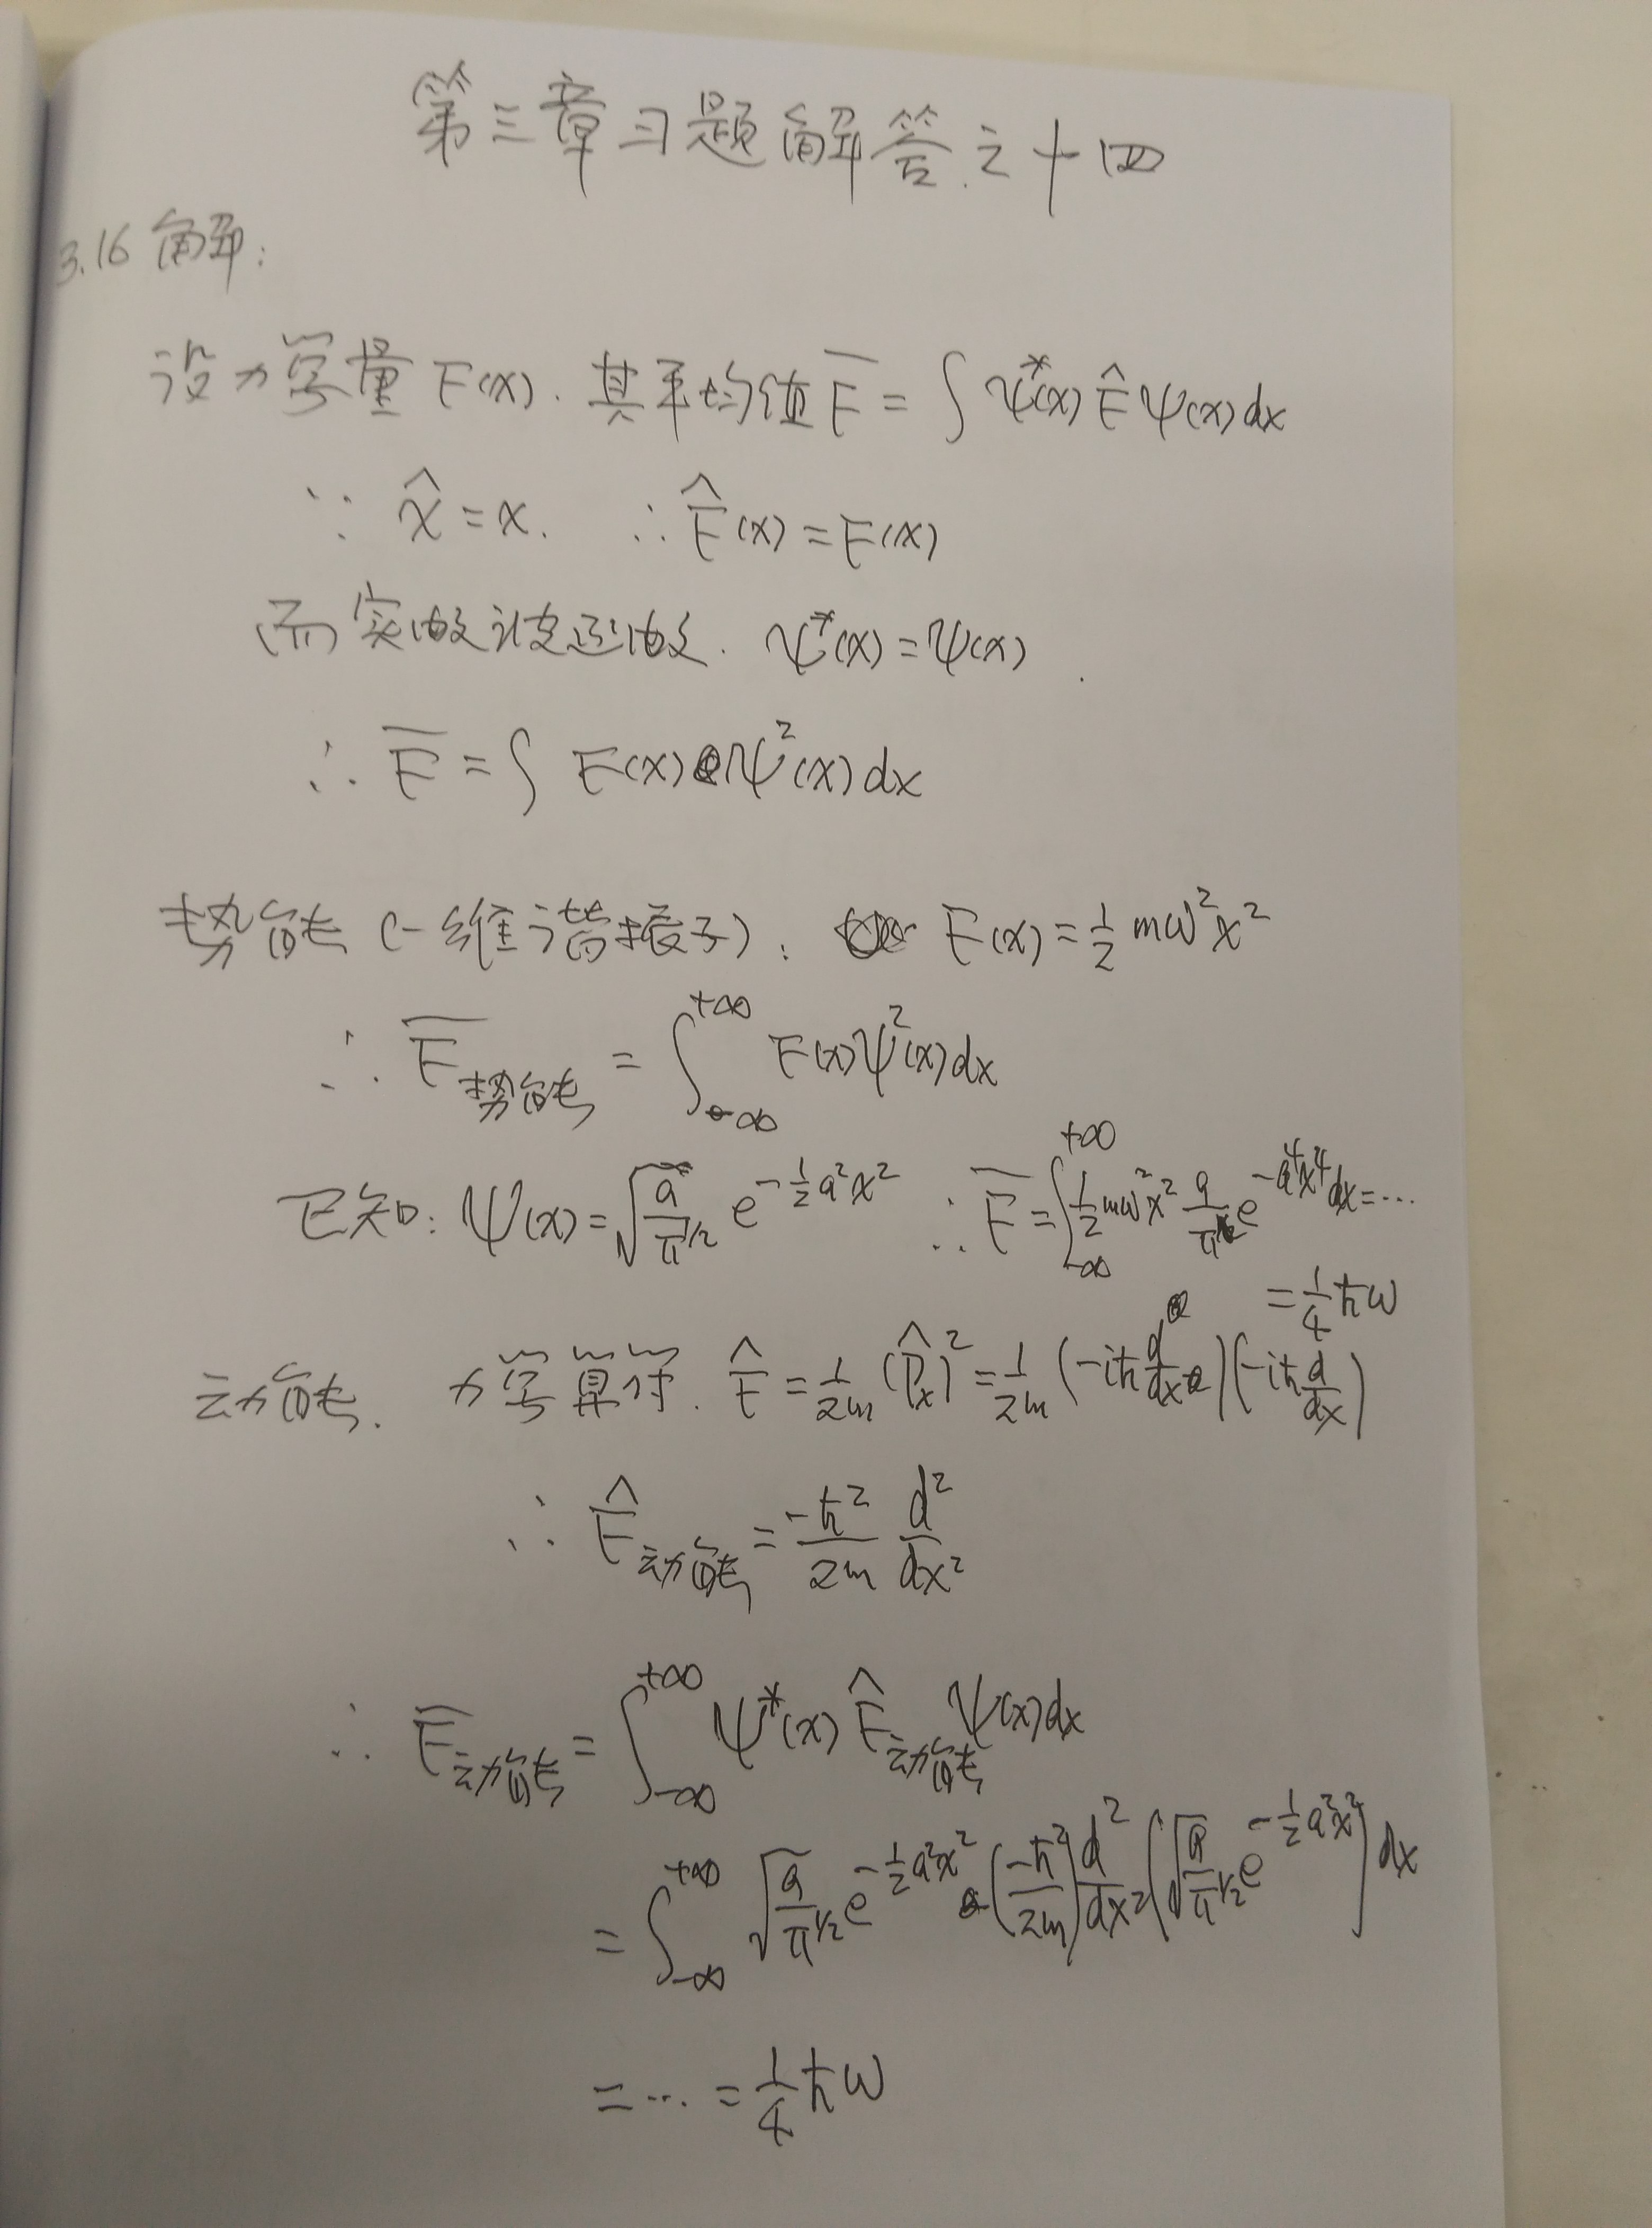 第三章习题解答之十四
3.16 解:
设力学量 F(x). 其平均值 F̅ = ∫ ψ*(x) F̂ ψ(x) dx
∵ x̂ = x. ∴ F̂(x) = F(x)
而实数波函数. ψ*(x) = ψ(x)
∴ F̅ = ∫ F(x) ψ²(x) dx
势能 (一维谐振子): F(x) = 1/2 mω²x²
∴ F̅势能 = ∫_{-∞}^{+∞} F(x)ψ²(x)dx
已知: ψ(x) = √(a/π^{1/2}) e^{-1/2 a²x²} ∴ F̅ = ∫_{-∞}^{+∞} 1/2 mω²x² a/π^{1/2} e^{-a⁴x⁴} dx = ...
= 1/4 ħω
动能. 力学算符. F̂ = 1/2m (P̂x)² = 1/2m (-iħ d/dx)(-iħ d/dx)
∴ F̂动能 = -ħ²/2m d²/dx²
∴ F̅动能 = ∫_{-∞}^{+∞} ψ*(x) F̂动能 ψ(x)dx
= ∫_{-∞}^{+∞} √(a/π^{1/2}) e^{-1/2 a²x²} (-ħ²/2m) d²/dx² (√(a/π^{1/2}) e^{-1/2 a²x²}) dx
= ... = 1/4 ħω